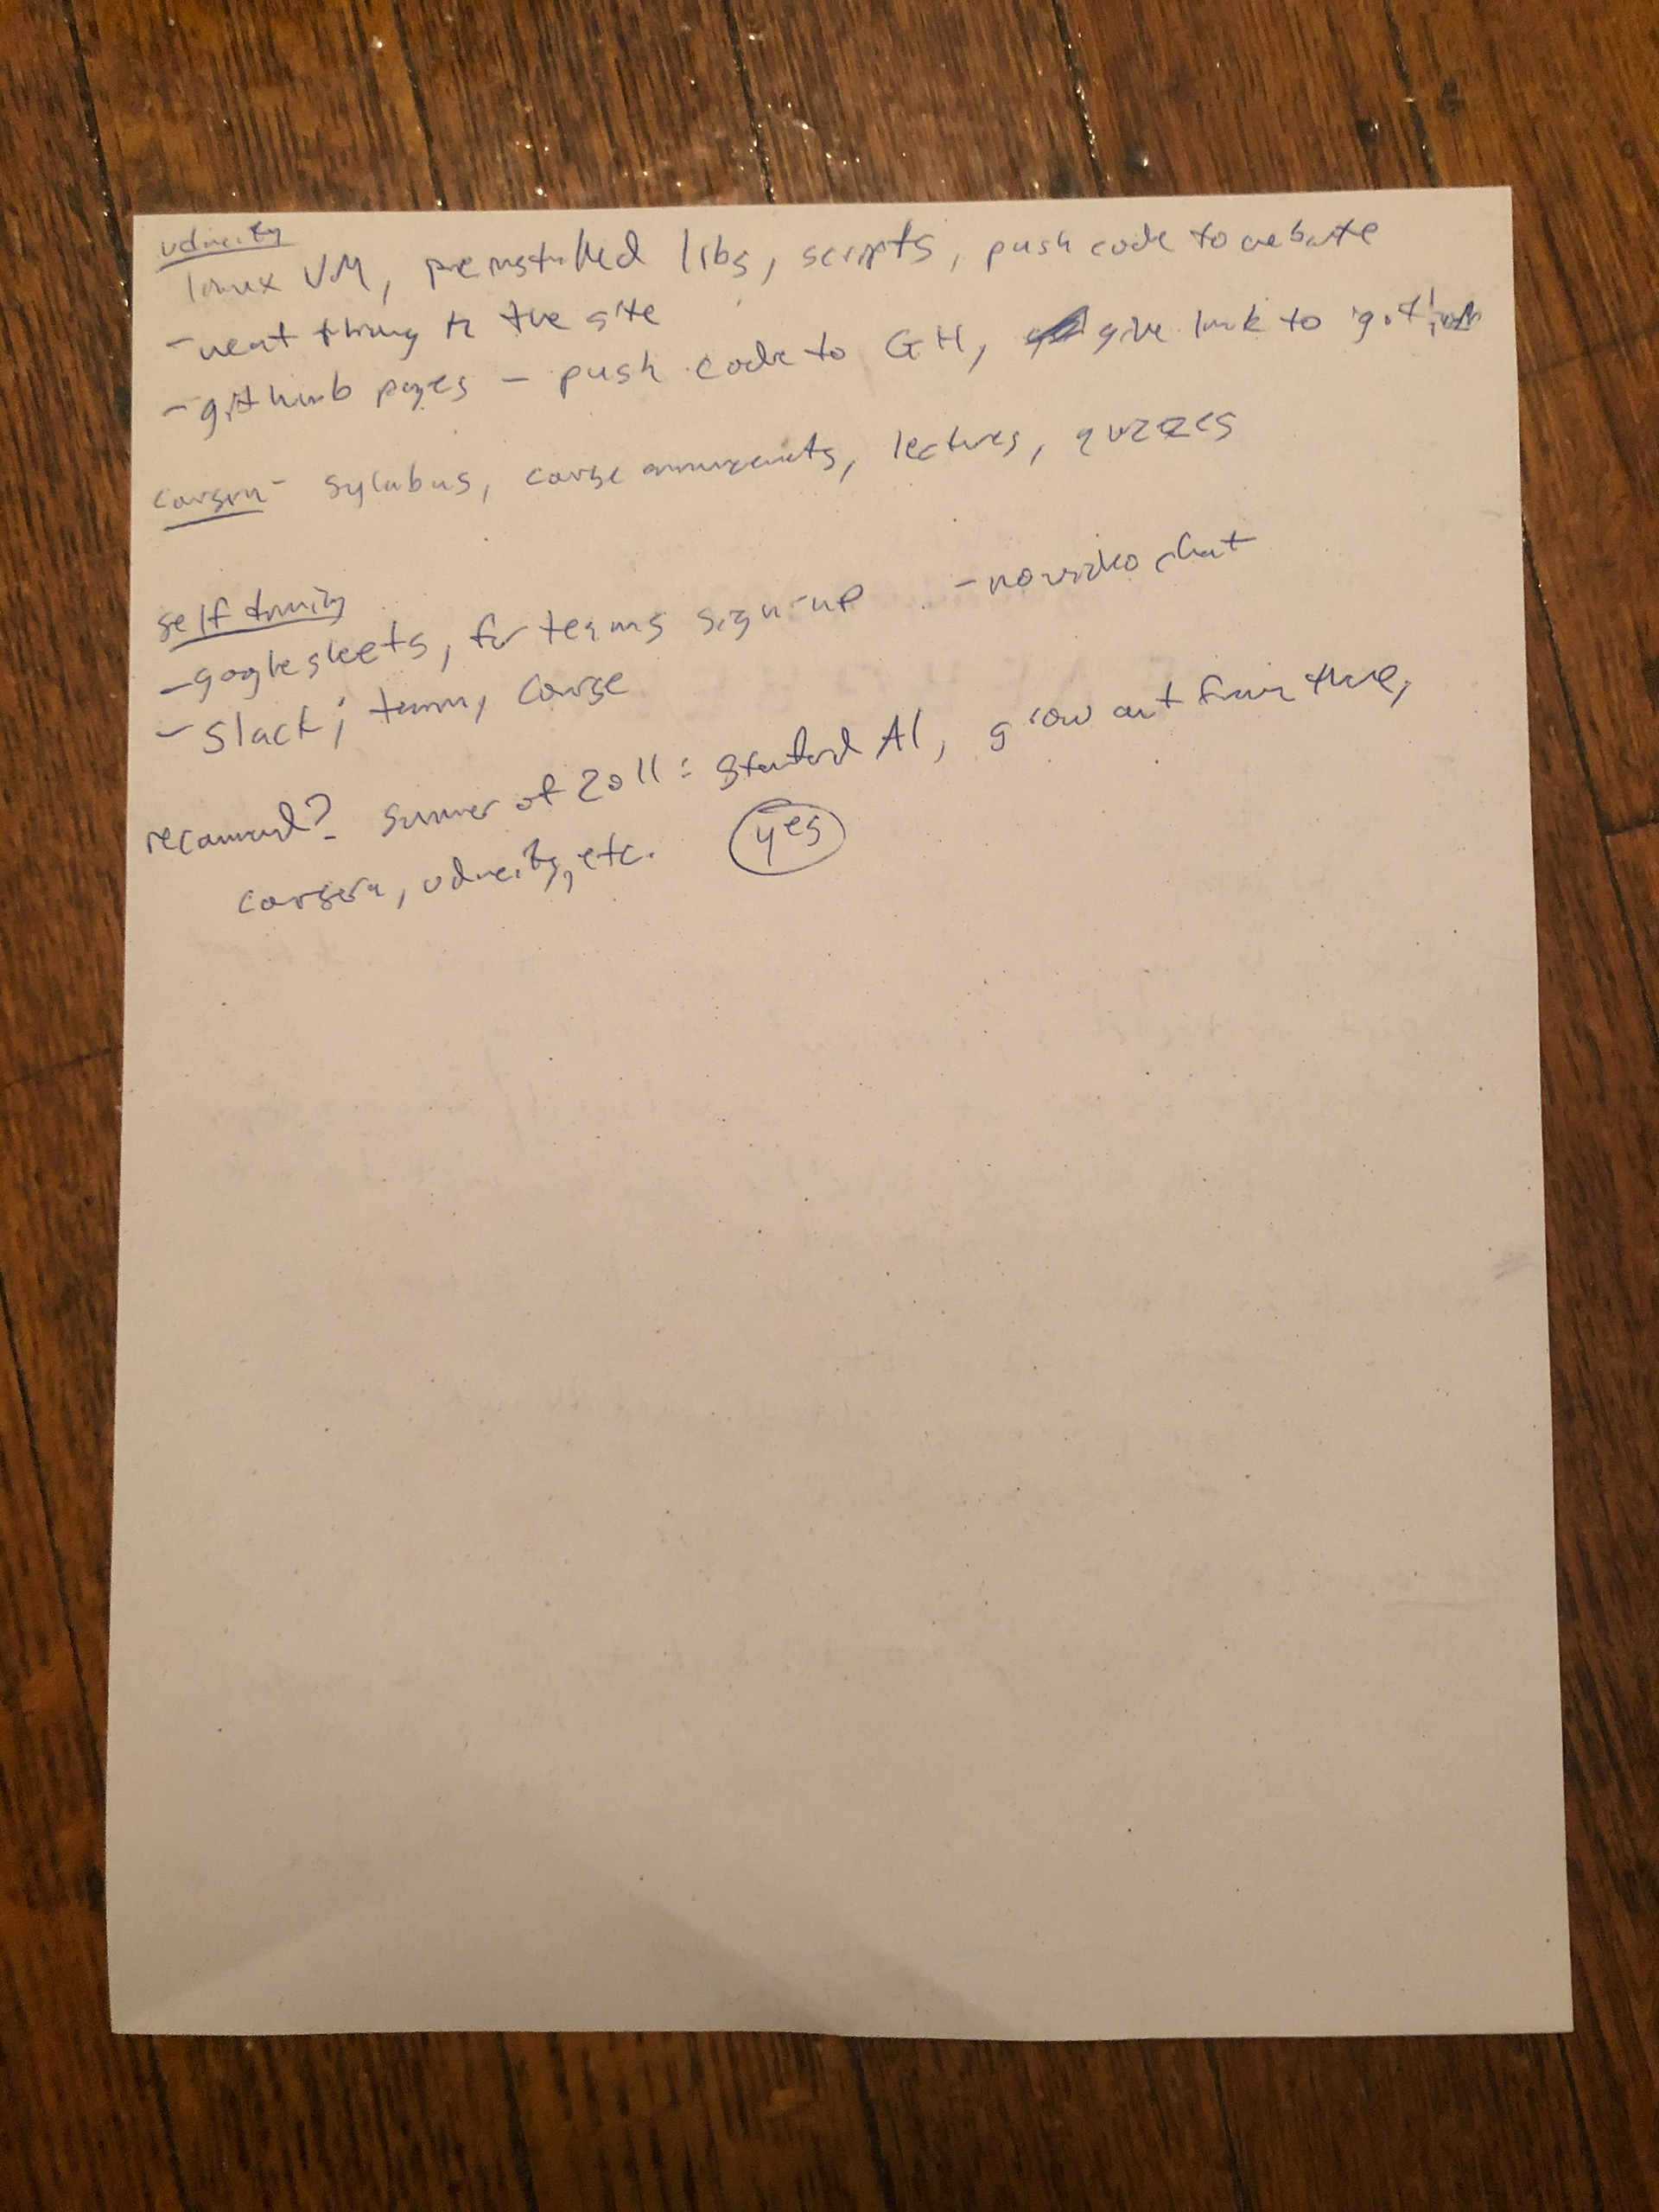 udacity
linux VM, preinstalled libs, scripts, push code to website
- went thing to the site
- github pages - push code to GH, give link to
coursera - sylabus, course announcements, lectures, quizzes
self
- google sheets, for teams sign-up - no video chat
- slack; team, course
recommend? summer of 2011: stanford AI, grow out from there,
coursera, udacity, etc. yes